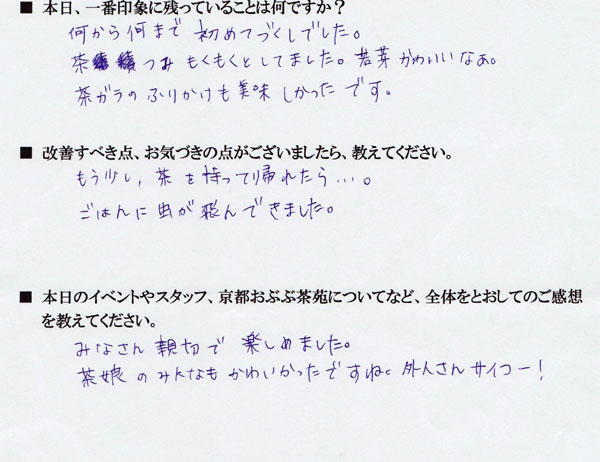 ■ 本日、一番印象に残っていることは何ですか？
何から何まで 初めてづくしでした。
茶つみ もくもくとしてました。若芽 かわいいなぁ。
茶ガラの ふりかけも 美味しかったです。
■ 改善すべき点、お気づきの点がございましたら、教えてください。
もう少し、茶を持って帰れたら…。
ごはんに 虫が 飛んできました。
■ 本日のイベントやスタッフ、京都おぶぶ茶苑についてなど、全体をとおしてのご感想
を教えてください。
みなさん 親切で 楽しめました。
茶娘 のみんなも かわいかったですね。外人さん サイコー！